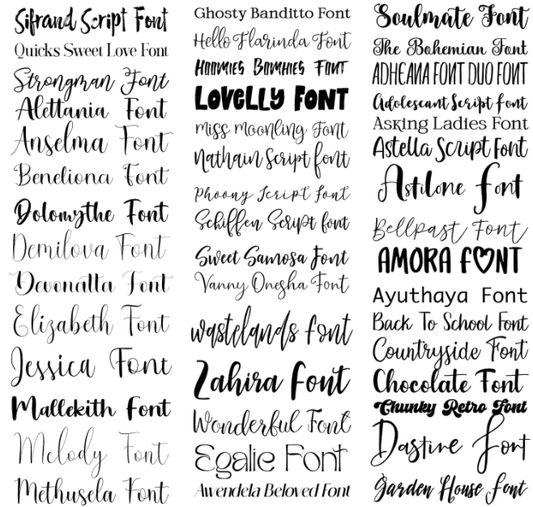 Sifrand Script Font
Quicks Sweet Love Font
Strongman Font
Alettania Font
Anselma Font
Bendiona Font
Dolomythe Font
Demilova Font
Devonatta Font
Elizabeth Font
Jessica Font
Mallekith Font
Melody Font
Methusela Font
Ghosty Banditto Font
Hello Flarinda Font
Hoomies Bomhies Font
Lovelly Font
Miss Moonling Font
Nathain Script font
Phoony Script Font
Schiffen Script font
Sweet Samosa Font
Vanny Onesha Font
wastelands font
Zahira Font
Wonderful Font
Egalie Font
Awendela Beloved Font
Soulmate Font
The Bohemian Font
ADHEANA FONT DUO FONT
Adolescant Script Font
Asking Ladies Font
Astella Script Font
Astilone font
Bellpast Font
AMORA FONT
Ayuthaya Font
Back To School Font
Countryside Font
Chocolate Font
Chunky Retro Font
Dastine Font
Garden House Font